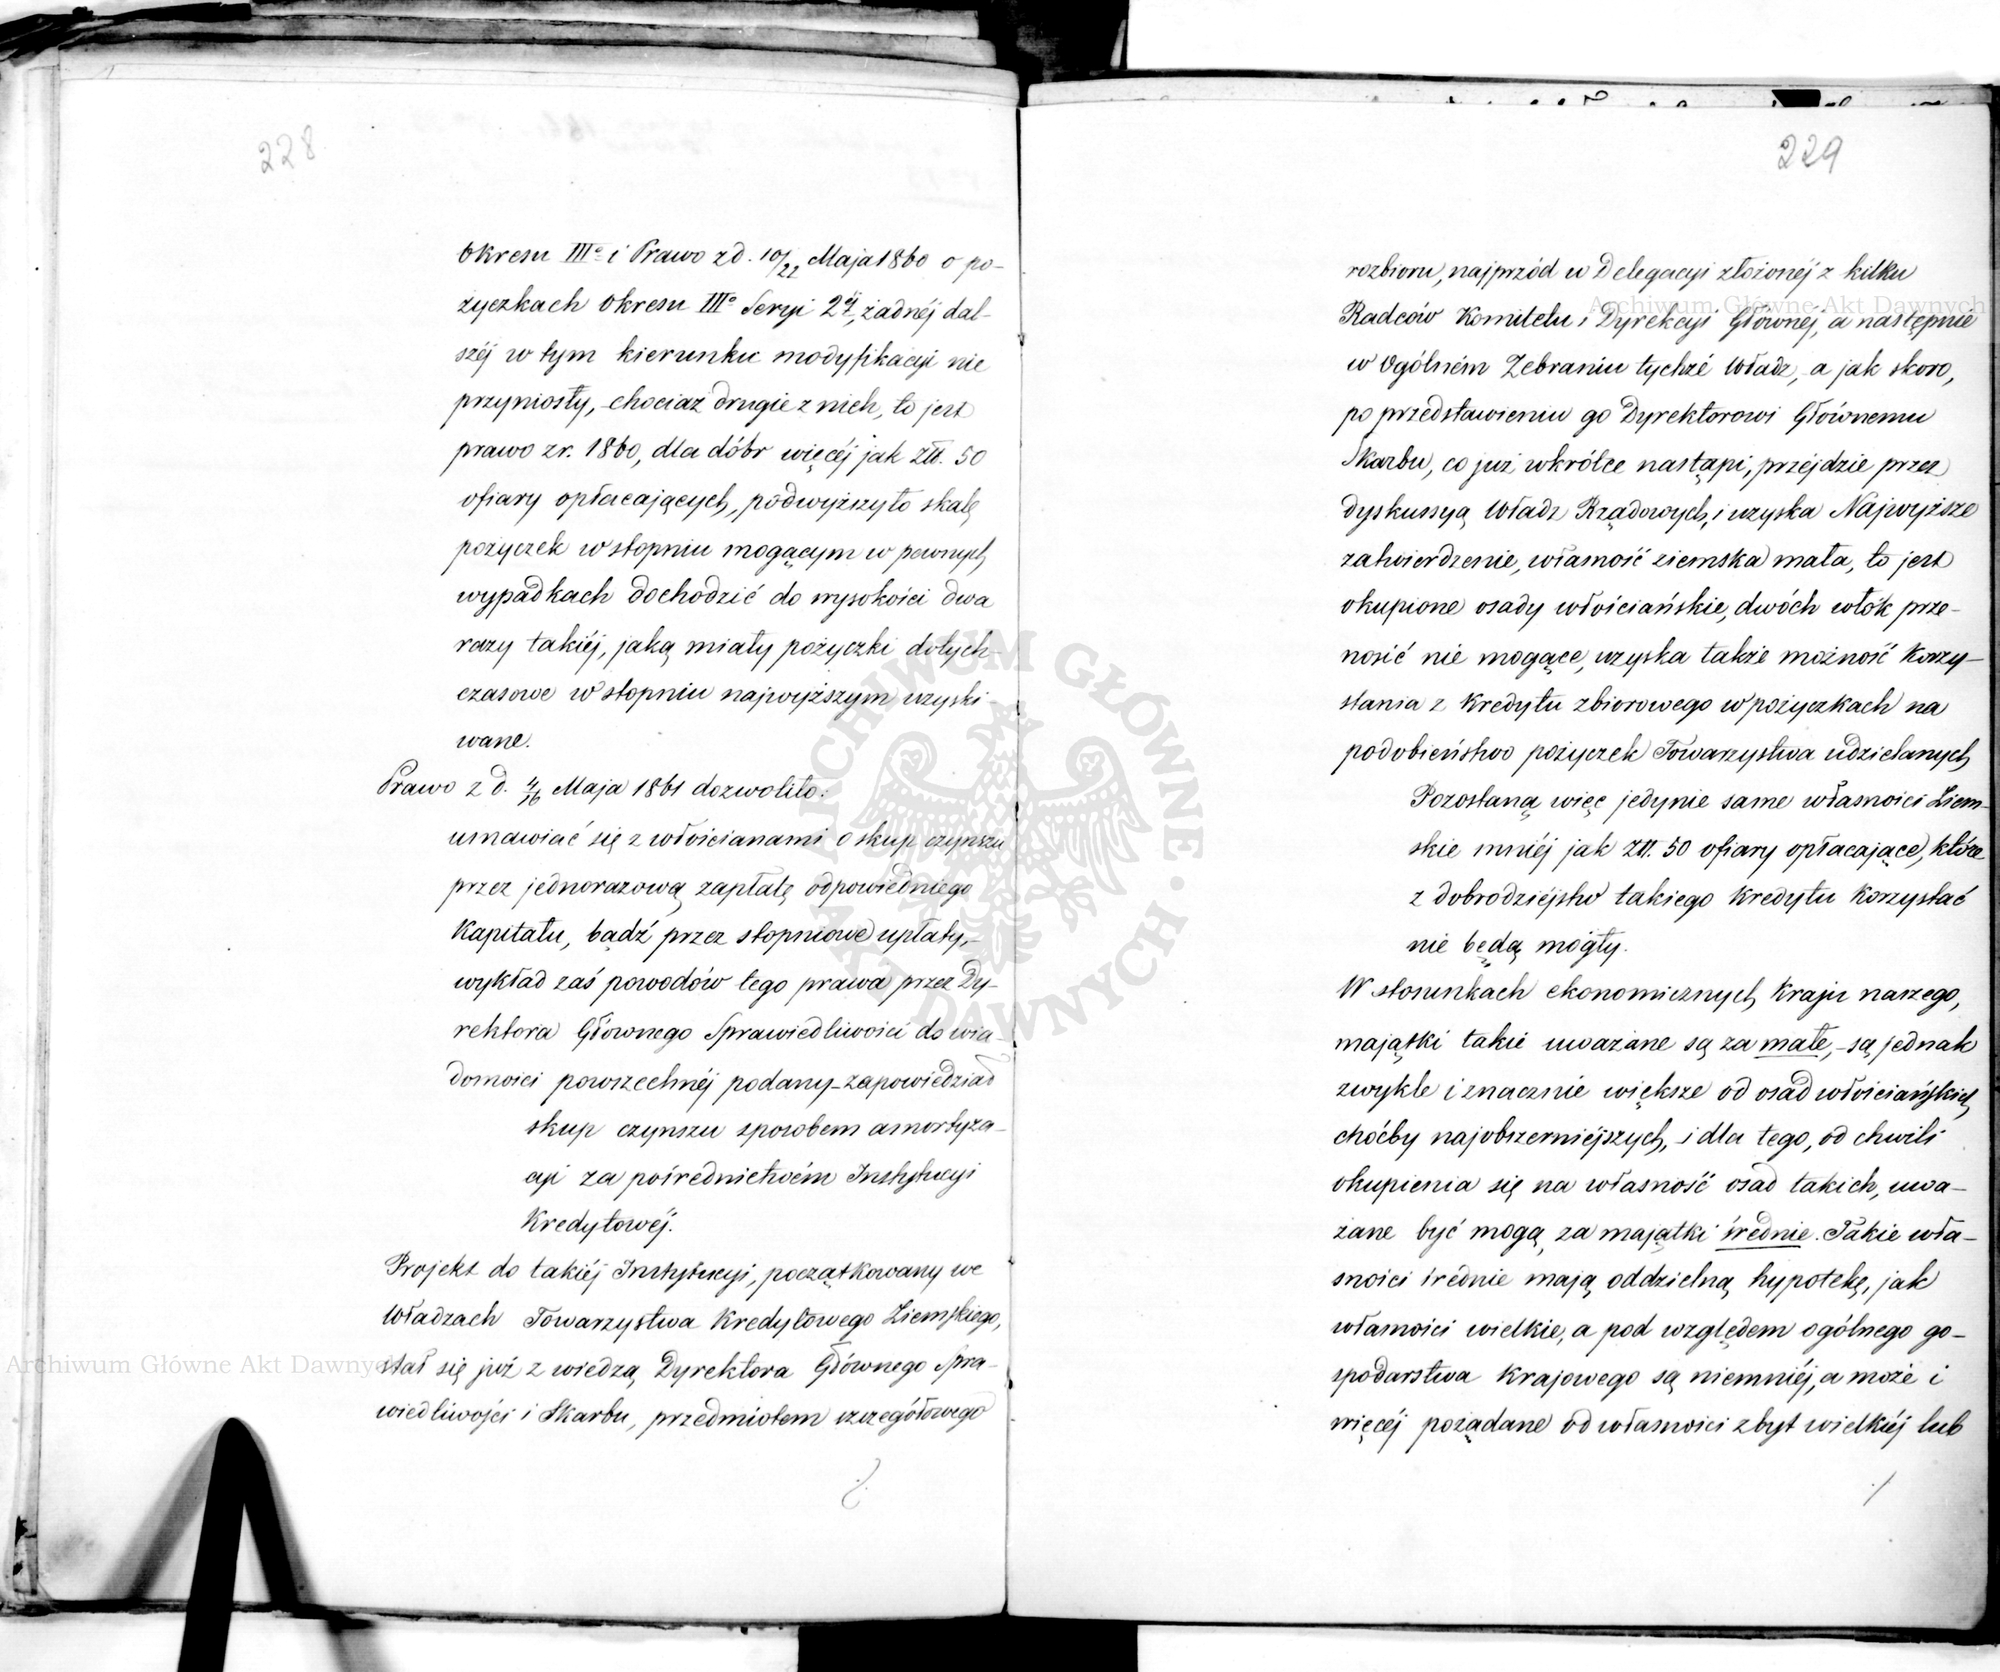 228
Okresu III° i Prawo z d. 10/22 Maja 1860 o po-
życzkach Okresu III° Seryi 2éj, żadnéj dal-
széj w tym kierunku modyfikacyi nie
przyniosły, chociaż drugie z nich, to jest
prawo z r. 1860, dla dóbr więcéj jak Złł. 50
ofiary opłacających, podwyższyło skalę
pożyczek w stopniu mogącym w pewnych
wypadkach dochodzić do wysokości dwa
razy takiéj, jaką miały pożyczki dotych-
czasowe w stopniu najwyższym uzyski-
wane.
Prawo z d. 4/16 Maja 1861 dozwoliło:
umawiać się z włościanami o skup czynszu
przez jednorazową zapłatę odpowiedniego
Kapitału, bądź przez stopniowe upłaty,-
wykład zaś powodów tego prawa przez Dy-
rektora Głównego Sprawiedliwości do wia-
domości powszechnéj podany-zapowiedział
skup czynszu sposobem amortyza-
cyi za pośrednictwém Instytucyi
Kredytowéj.
Projekt do takiéj Instytucyi, początkowany we
Władzach Towarzystwa Kredytowego Ziemskiego,
stał się już z wiedzą Dyrektora Głównego Spra-
wiedliwości i Skarbu, przedmiotem szczegółowego
229
rozbioru, najprzód w Delegacyi złożonéj z kilku
Radców Komitetu i Dyrekcyi Głównéj, a następnie
w Ogólném Zebraniu tychże Władz, a jak skoro,
po przedstawieniu go Dyrektorowi Głównemu
Skarbu, co już wkrótce nastąpi, przejdzie przez
dyskussyą Władz Rządowych, i uzyska Najwyższe
zatwierdzenie, własność ziemska mała, to jest
okupione osady włościańskie, dwóch włók prze-
nosić nie mogące, uzyska także możność korzy-
stania z Kredytu zbiorowego w pożyczkach na
podobieństwo pożyczek Towarzystwa udzielanych
Pozostaną więc jedynie same własności Ziem-
skie mniéj jak Złł. 50 ofiary opłacające, które
z dobrodziéjstw takiego Kredytu korzystać
nie będą mogły.
W stosunkach ekonomicznych Kraju naszego,
majątki takie uważane są za małe,-są jednak
zwykle i znacznie większe od osad włościańskich
choćby najobszerniéjszych, i dla tego, od chwili
okupienia się na własność osad takich, uwa-
żane być mogą za majątki średnie. Takie wła-
sności średnie mają oddzielną hypotekę, jak
własności wielkie, a pod względem ogólnego go-
spodarstwa Krajowego są niemniéj, a może i
więcéj pożądane od własności zbyt wielkiéj lub
ARCHIWUM GŁÓWNE AKT DAWNYCH
Archiwum Główne Akt Dawnych
Archiwum Główne Akt Dawnych